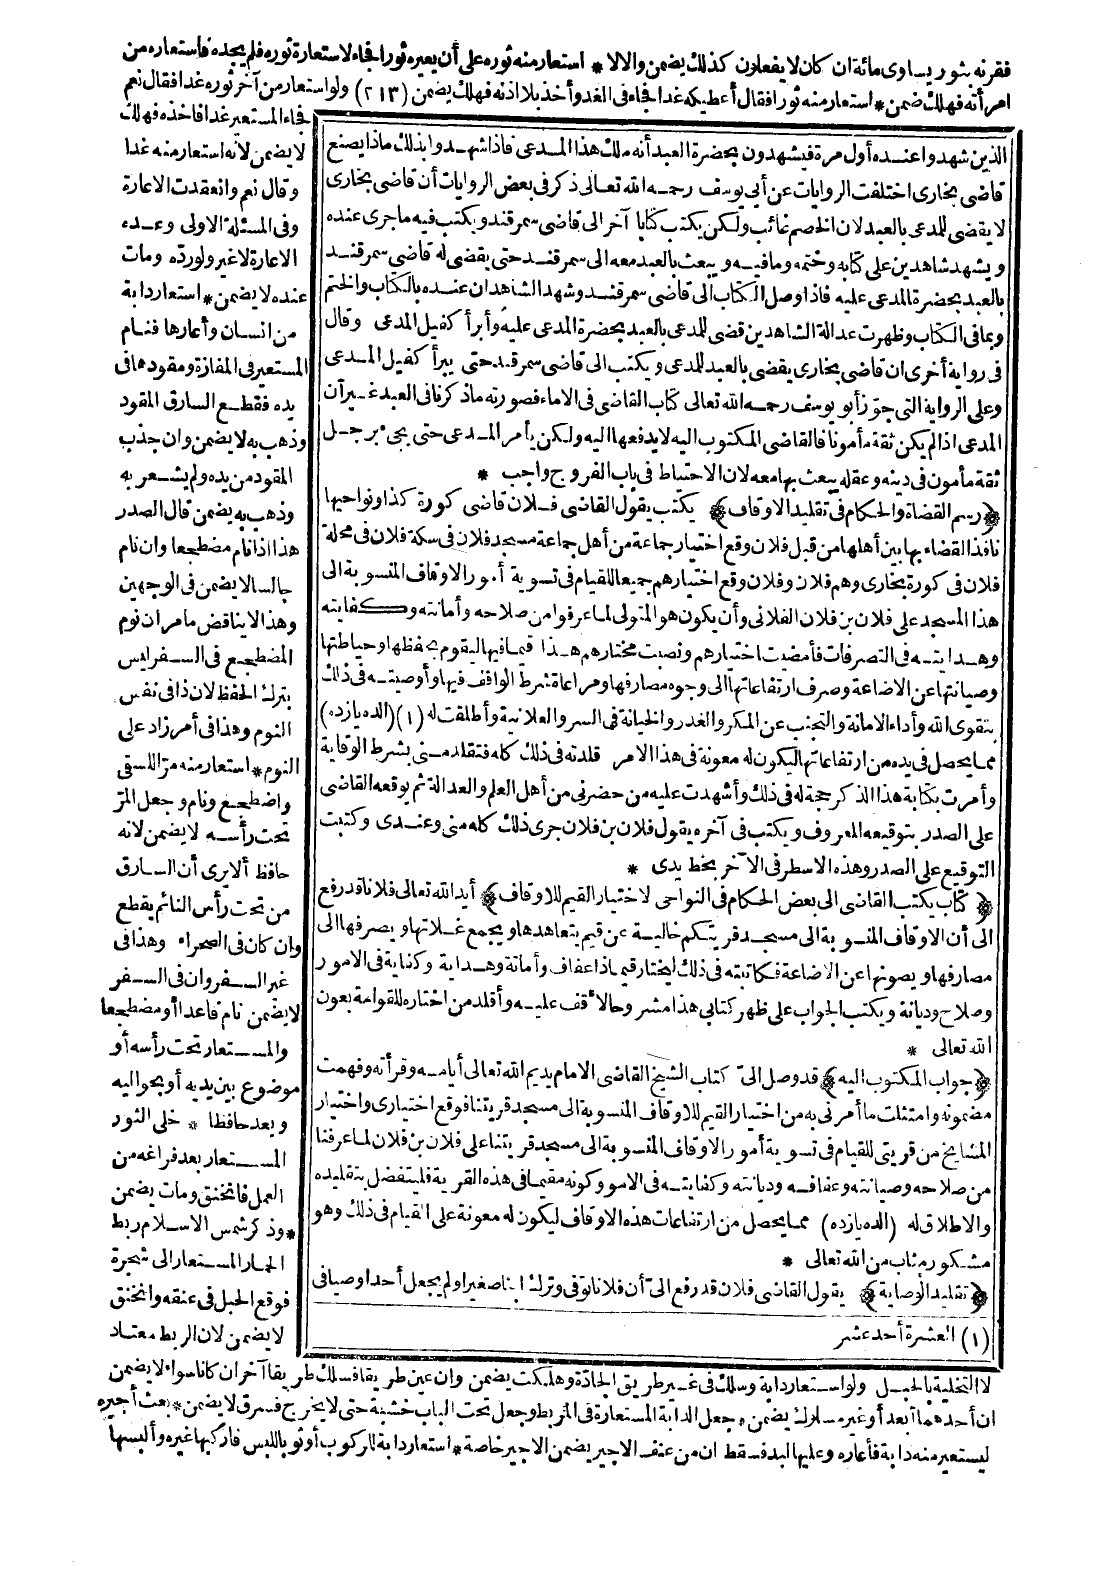 فقرنه بثور يساوى مائة ان كان لا يفعلون كذلك يضمن والا لا * استعار منه ثوره على أن يعيره ثورا فجاء لاستعارة ثوره فلم يجده فاستعاره من
امرأته فهلك ضمن * استعار منه ثورا فقال أعطيكه غدا فجاء فى الغد وأخذ بلا اذنه فهلك يضمن (٢١٣) ولو استعار من آخر ثوره غدا فقال نعم
فجاء المستعير غدا فاخذه فهلك
لا يضمن لانه استعار منه غدا
وقال نعم وانعقدت الاعارة
وفى المسئلة الاولى وعده
الاعارة لا غير ولو رده ومات
عنده لا يضمن * استعار دابة
من انسان وأعارها فنام
المستعير فى المفازة ومقودها فى
يده فقطع السارق المقود
وذهب به لا يضمن وان جذب
المقود من يده ولم يشعر به
وذهب به يضمن قال الصدر
هذا اذا نام مضطجعا وان نام
جالسا لا يضمن فى الوجهين
وهذا لا يناقض ما مر ان نوم
المضطجع فى السفر ليس
بترك الحفظ لان ذا فى نفس
النوم وهذا فى أمر زاد على
النوم * استعار منه مرّا للسقى
واضطجع ونام وجعل المرّ
تحت رأسه لا يضمن لانه
حافظ ألا يرى أن السارق
من تحت رأس النائم يقطع
وان كان فى الصحراء وهذا فى
غير السفر وان فى السفر
لا يضمن نام قاعدا أو مضطجعا
والمستعار تحت رأسه أو
موضوع بين يديه أو بحواليه
ويعد حافظا * خلى الثور
المستعار بعد فراغه من
العمل فاختنق ومات يضمن
* وذكر شمس الاسلام ربط
الحمار المستعار الى شجرة
فوقع الحبل فى عنقه وانخنق
لا يضمن لان الربط معتاد
الذين شهدوا عنده أول مرة فيشهدون بحضرة العبد أنه ملك هذا المدعى فاذا شهدوا بذلك ماذا يصنع
قاضى بخارى اختلفت الروايات عن أبى يوسف رحمه الله تعالى ذكر فى بعض الروايات أن قاضى بخارى
لا يقضى للمدعى بالعبد لان الخصم غائب ولكن يكتب كتابا آخر الى قاضى سمرقند ويكتب فيه ما جرى عنده
ويشهد شاهدين على كتابه وختمه وما فيه ويبعث بالعبد معه الى سمرقند حتى يقضى له قاضى سمرقند
بالعبد بحضرة المدعى عليه فاذا وصل الكتاب الى قاضى سمرقند وشهد الشاهدان عنده بالكتاب والختم
وبما فى الكتاب وظهرت عدالة الشاهدين قضى للمدعى بالعبد بحضرة المدعى عليه وأبرأ كفيل المدعى وقال
فى رواية أخرى ان قاضى بخارى يقضى بالعبد للمدعى ويكتب الى قاضى سمرقند حتى يبرأ كفيل المدعى
وعلى الرواية التى جوّز أبو يوسف رحمه الله تعالى كتاب القاضى فى الاماء فصورته ما ذكرنا فى العبد غير أن
المدعى اذا لم يكن ثقة مأمونا فالقاضى المكتوب اليه لا يدفعها اليه ولكن يأمر المدعى حتى يجىء برجل
ثقة مأمون فى دينه وعقله يبعث بها معه لان الاحتياط فى باب الفروج واجب *
﴿رسم القضاة والحكام فى تقليد الاوقاف﴾ يكتب يقول القاضى فلان قاضى كورة كذا ونواحيها
نافذ القضاء بها بين أهلها من قبل فلان وقع اختيار جماعة من أهل جماعة مسجد فلان فى سكة فلان فى محلة
فلان فى كورة بخارى وهم فلان وفلان وقع اختيارهم جميعا للقيام فى تسوية أمور الاوقاف المنسوبة الى
هذا المسجد على فلان بن فلان الفلانى وأن يكون هو المتولى لما عرفوا من صلاحه وأمانته وكفايته
وهدايته فى التصرفات فأمضيت اختيارهم ونصبت مختارهم هذا قيما فيها ليقوم بحفظها وحياطتها
وصيانتها عن الاضاعة وصرف ارتفاعاتها الى وجوه مصارفها ومراعاة شرط الواقف فيها وأوصيته فى ذلك
بتقوى الله وأداء الامانة والتجنب عن المكر والغدر والخيانة فى السر والعلانية وأطلقت له (١) (الده يازده)
مما يحصل فى يده من ارتفاعاتها ليكون له معونة فى هذا الامر قلدته فى ذلك كله فتقلد منى بشرط الوقاية
وأمرت بكتابة هذا الذكر حجة له فى ذلك وأشهدت عليه من حضرنى من أهل العلم والعدالة ثم يوقعه القاضى
على الصدر بتوقيعه المعروف ويكتب فى آخره يقول فلان بن فلان جرى ذلك كله منى وعندى وكتبت
التوقيع على الصدر وهذه الاسطر فى الآخر بخط يدى *
﴿كتاب يكتب القاضى الى بعض الحكام فى النواحى لاختيار القيم للاوقاف﴾ أيد الله تعالى فلانا قد رفع
الى أن الاوقاف المنسوبة الى مسجد قريتكم خالية عن قيم يتعاهدها ويجمع غلاتها ويصرفها الى
مصارفها ويصونها عن الاضاعة فكاتبته فى ذلك ليختار قيما ذا عفاف وأمانة وهداية وكفاية فى الامور
وصلاح وديانة ويكتب الجواب على ظهر كتابى هذا مشروحا لأقف عليه وأقلد من اختاره للقوامة بعون
الله تعالى *
﴿جواب المكتوب اليه﴾ قد وصل الىّ كتاب الشيخ القاضى الامام يديم الله تعالى أيامه وقرأته وفهمت
مضمونه وامتثلت ما أمرنى به من اختيار القيم للاوقاف المنسوبة الى مسجد قريتنا فوقع اختيارى واختيار
المشايخ من قريتى للقيام فى تسوية أمور الاوقاف المنسوبة الى مسجد قريتنا على فلان بن فلان لما عرفنا
من صلاحه وصيانته وعفافه وديانته وكفايته فى الامور وكونه مقيما فى هذه القرية فليتفضل بتقليده
والاطلاق له (الده يازده) مما يحصل من ارتفاعات هذه الاوقاف ليكون له معونة على القيام فى ذلك وهو
مشكور مثاب من الله تعالى *
﴿تقليد الوصاية﴾ يقول القاضى فلان قد رفع الىّ أن فلانا توفى وترك ابنا صغيرا ولم يجعل أحدا وصيا فى
(١) العشرة أحد عشر
لا التخلية بالحبل ولو استعار دابة وسلك فى غير طريق الجادة وهلكت يضمن وان عين طريقا فسلك طريقا آخر ان كانا سواء لا يضمن
ان أحدهما أبعد أو غير مسلوك يضمن * جعل الدابة المستعارة فى المربط وجعل تحت الباب خشبة حتى لا يخرج فسرق لا يضمن * بعث أجيره
ليستعير منه دابة فأعاره وعليها لبد فسقط ان من عنف الاجير يضمن الاجير خاصة * استعار دابة للركوب أو ثوبا للبس فاركبها غيره وألبسها